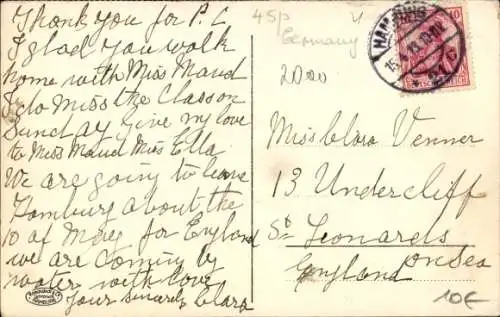 Thank you for P.C
I glad you walk
home with Miss Maud
I do miss the Class on
Sunday give my love
to Miss Maud Mis Ella
We are going to leave
Hamburg about the
10 of May for England
we are coming by
water with love
your sincerely Clara
45p
Germany
2000
HAMBURG
10
Miss Clara Venner
13 Undercliff
St Leonards
on Sea
England
10€